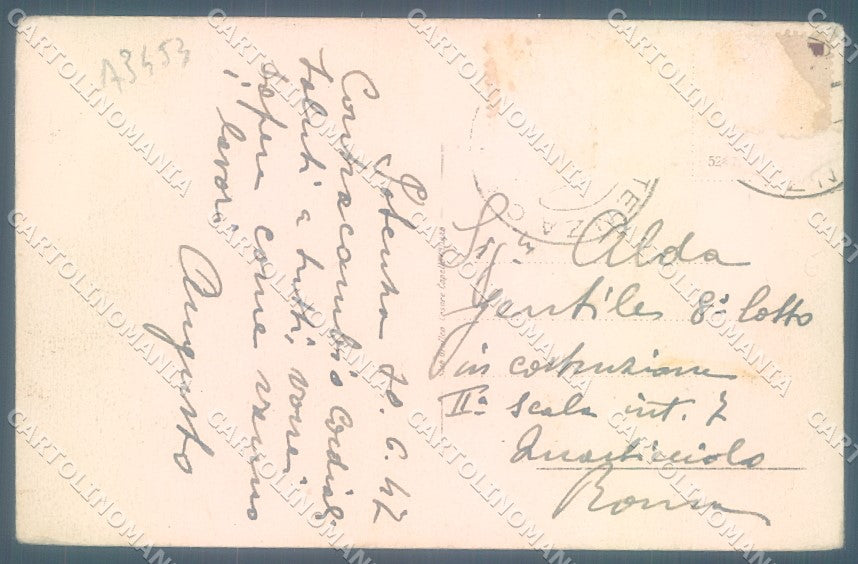 A3453
Potenza 20.6.47
Contracambio cordiali
saluti a tutti, vorrei
sapere come vanno
i lavori
Augusto
POTENZA
Sig.ª Alda
Gentiles 8° lotto
in costruzione
IIª Scala int. 7
Quarticciolo
Roma
CARTOLINOMANIA